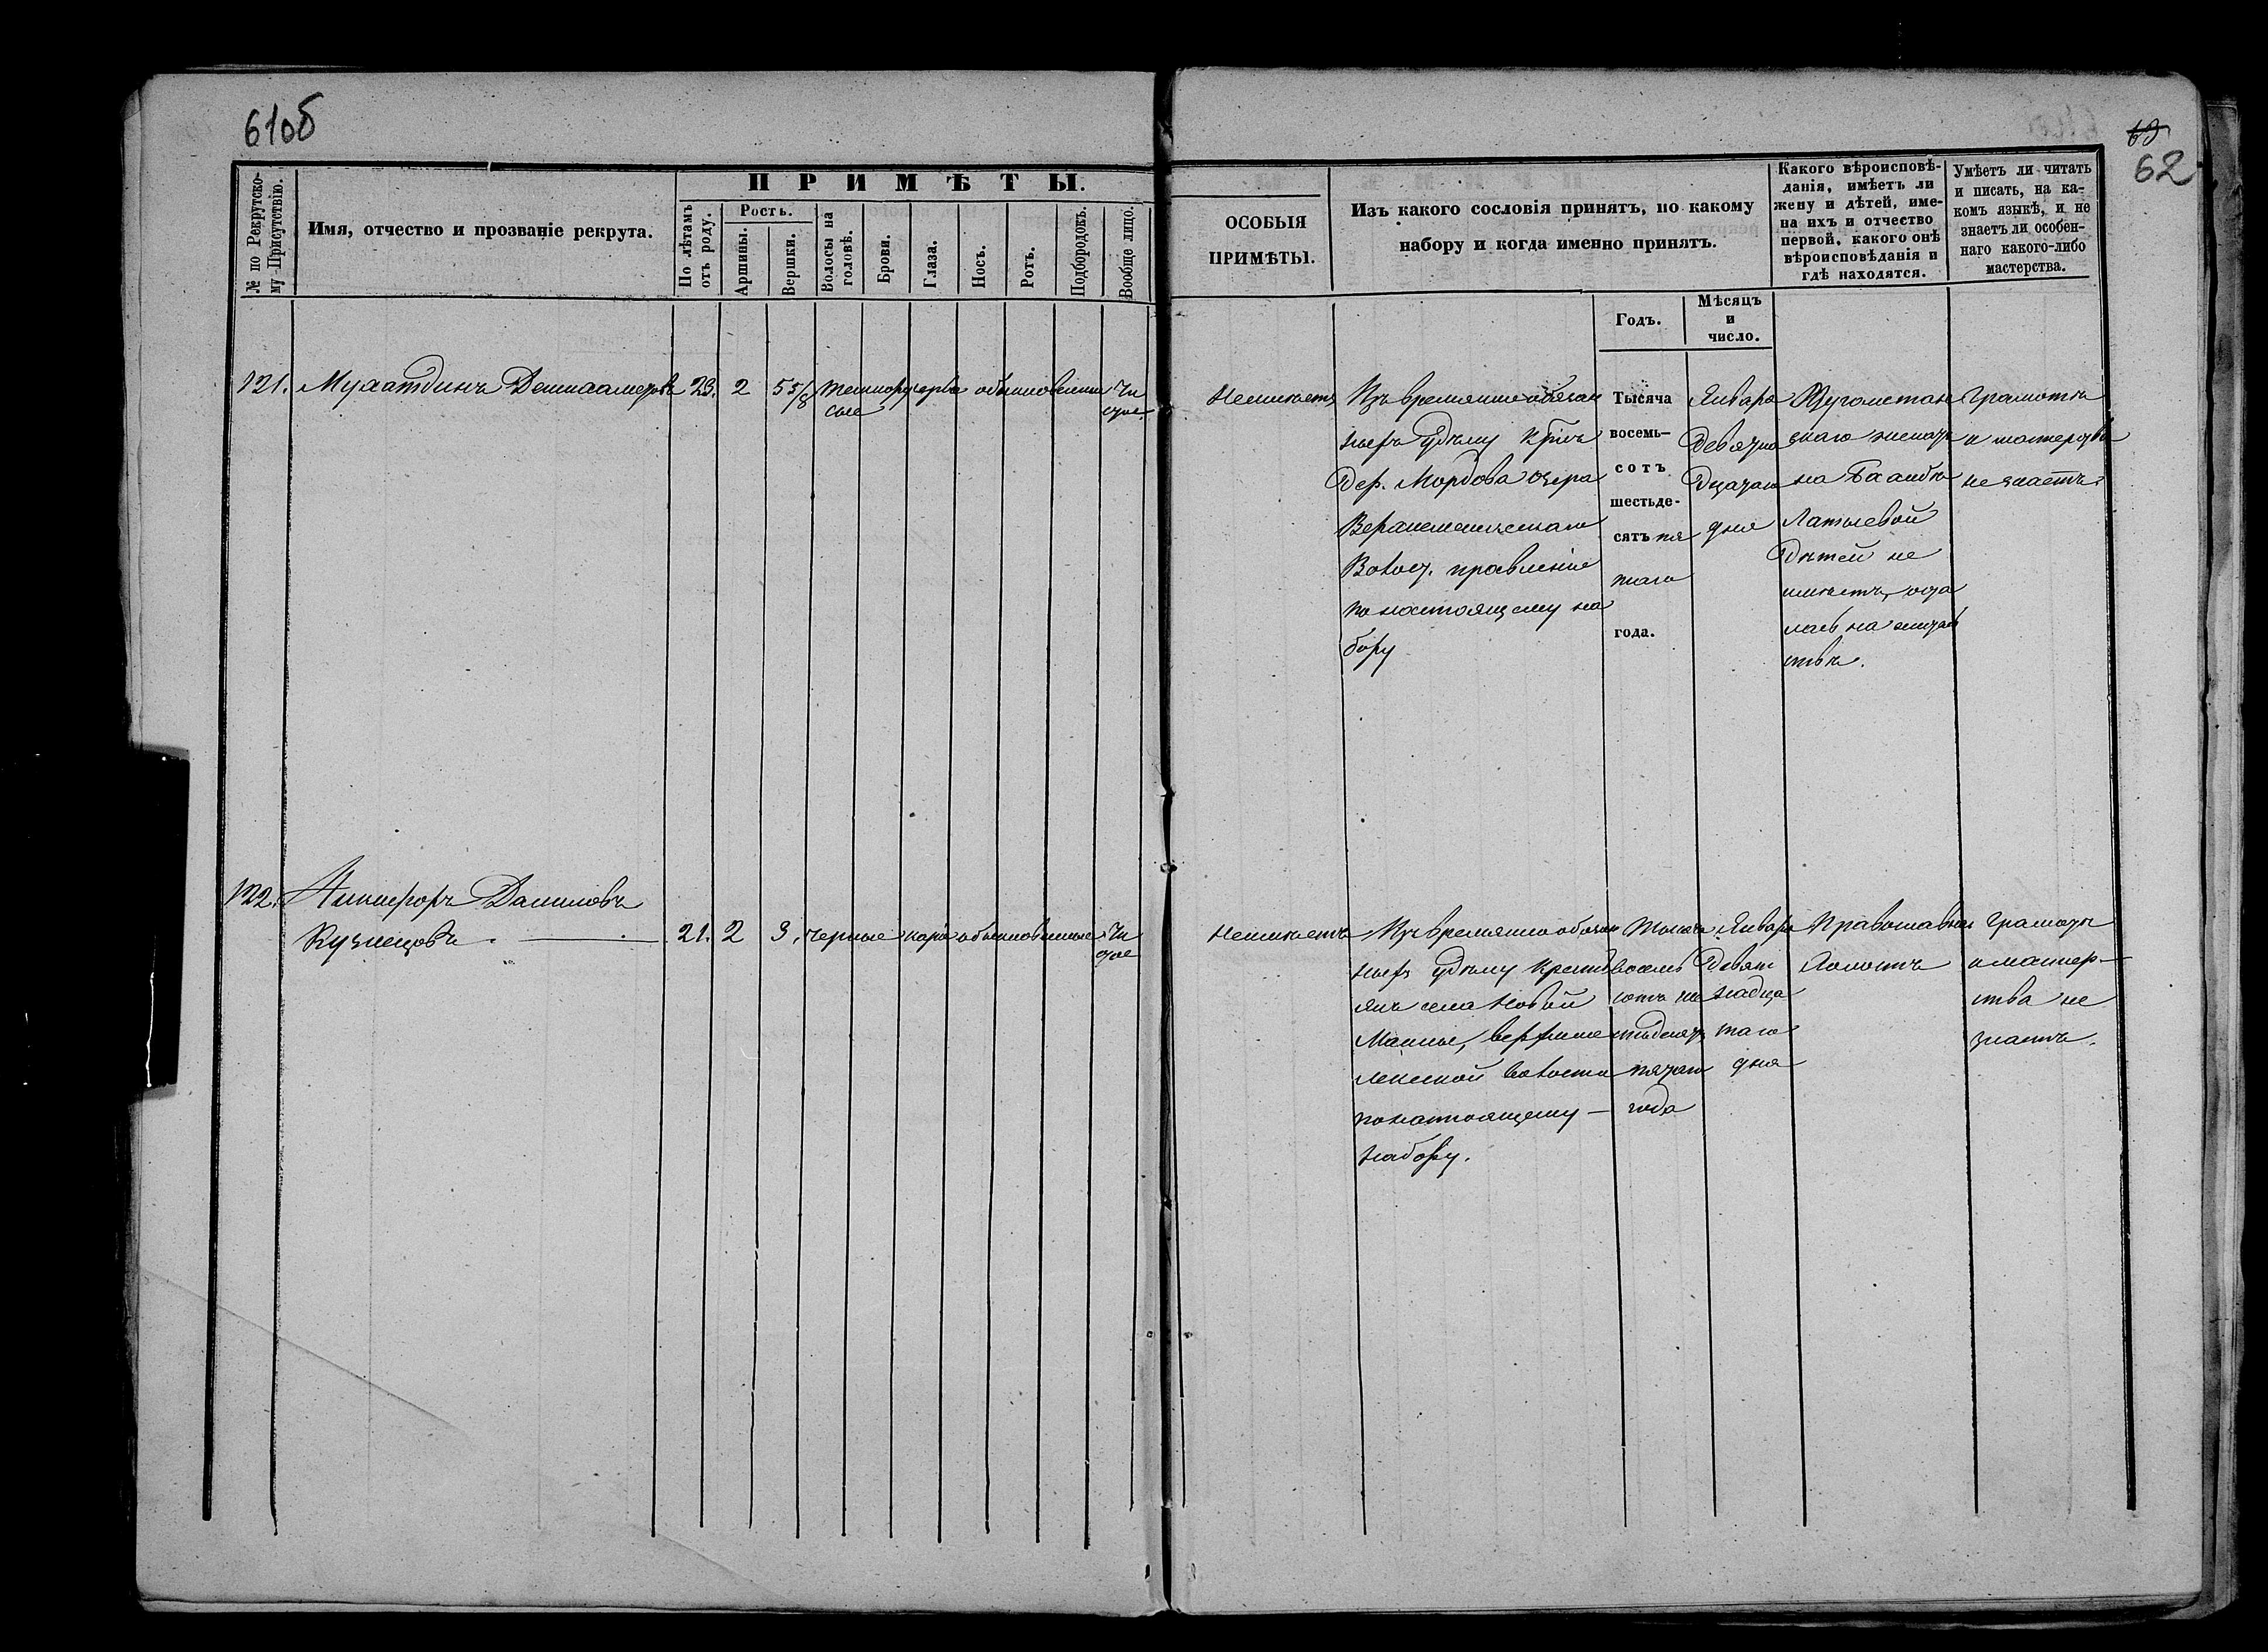 61об
63
62
№ по Рекрутско-
му Присутствію.
Имя, отчество и прозваніе рекрута.
ПРИМѢТЫ.
По лѣтамъ
отъ роду.
Ростъ.
Аршины.
Вершки.
Волосы на
головѣ.
Брови.
Глаза.
Носъ.
Ротъ.
Подбородокъ.
Вообще лицо.
ОСОБЫЯ
ПРИМѢТЫ.
Изъ какого сословія принятъ, по какому
набору и когда именно принятъ.
Годъ.
Мѣсяцъ
и
число.
Какого вѣроисповѣ-
данія, имѣетъ ли
жену и дѣтей, име-
на ихъ и отчество
первой, какого онѣ
вѣроисповѣданія и
гдѣ находятся.
Умѣетъ ли читать
и писать, на ка-
комъ языкѣ, и не
знаетъ ли особен-
наго какого-либо
мастерства.
121. 23. 2 5 5/8 темнору
сые
обыкновенные чи
стое
Неимѣетъ
Изъ временнообязан
ныхъ удѣлу
Дер. Мордова Озера
Волос. правленія
по настоящему на
бору
Тысяча
восемь-
сотъ
шестьде-
сятъ пя
таго
года.
Января
Девятна
дцатаго
дня
Магометан
скаго женатъ
на
Латыевой
Дѣтей не
имѣетъ, оста
лась на житель
ствѣ.
Грамоты
и мастерства
не знаетъ.
122. Никифоръ Даниловъ
Кузнецовъ. 21. 2 3. черные каріе обыкновенные чи
стое
Неимѣетъ
Изъ временно обязан
ныхъ удѣлу кресть
янъ села Новой
Маины,
волости
по настоящему
набору.
Тысяча
восемь
сотъ ше
стьдесятъ
пятаго
года
Января
Девят
надца
таго
дня
Православнаго
Холостъ
Грамоты
и мастер-
ства не
знаетъ.